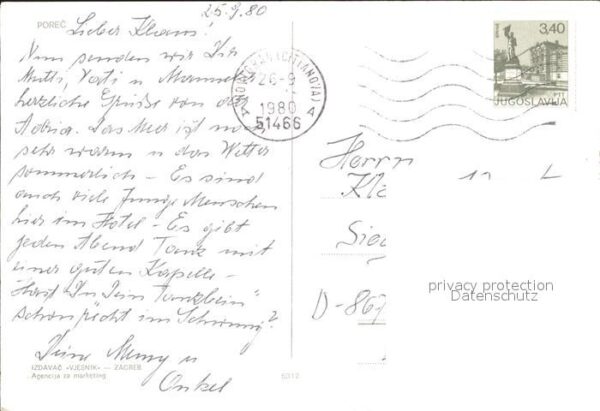 25.9.80
POREČ
Lieber Klaus!
Nun senden wir Dir
Mutti, Vati u
herzliche Grüße von der
Adria. Das Meer ist noch
sehr warm u das Wetter
sommerlich - Es sind
auch viele Junge Menschen
hier im Hotel - Es gibt
jeden Abend Tanz mit
einer guten Kapelle -
Hast Du Dein "Tanzbein"
schon recht im Schwung?
Deine u
Onkel
IZDAVAČ »VJESNIK« — ZAGREB
Agencija za marketing
(CITTANOVA)
26-9
1980
A A
51466
3,40
JUGOSLAVIJA
Herrn
D-867
privacy protection
Datenschutz